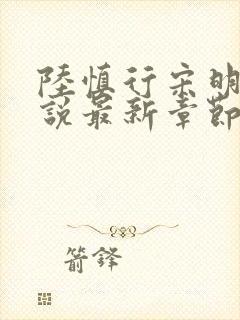 陸慎行宋明
說最新章節
箭鋒